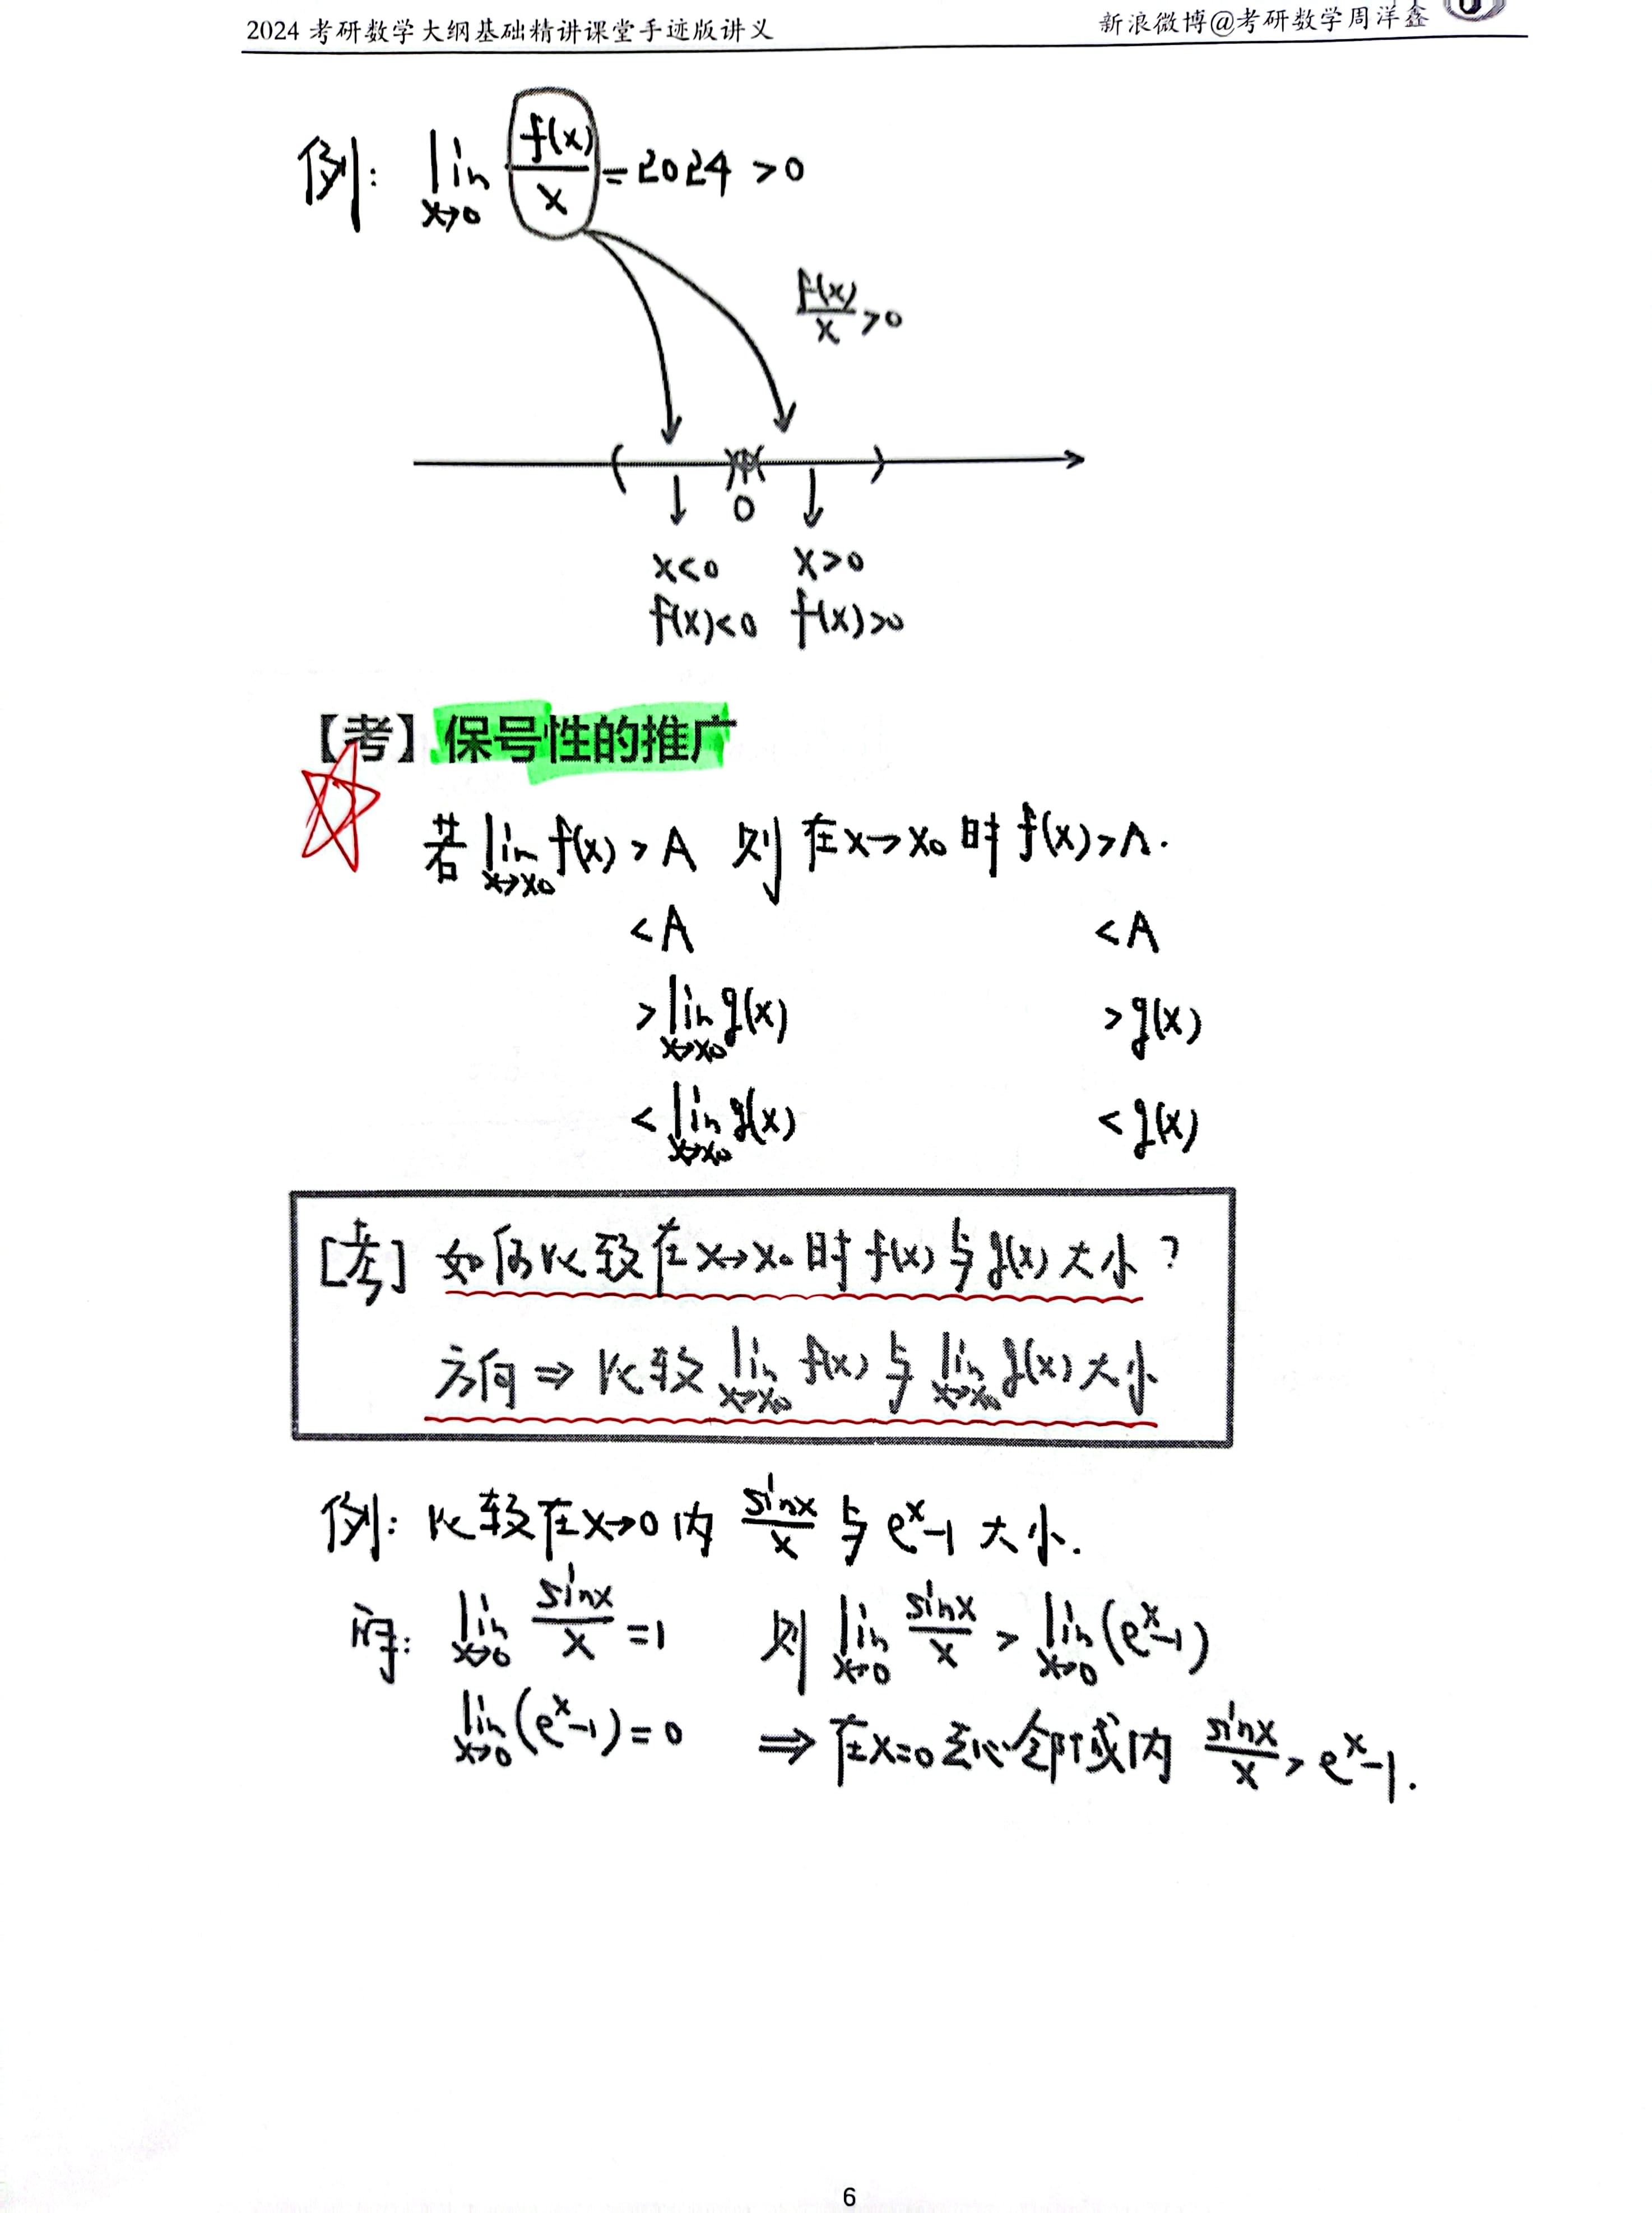 2024 考研数学大纲基础精讲课堂手迹版讲义
新浪微博@考研数学周洋鑫
例: lim x→0 f(x)/x = 2024 > 0
f(x)/x > 0
0
x<0 x>0
f(x)<0 f(x)>0
【考】保号性的推广
若 lim x→x₀ f(x) > A 则在 x→x₀ 时 f(x) > A.
< A < A
> lim x→x₀ g(x) > g(x)
< lim x→x₀ g(x) < g(x)
[考] 如何比较在 x→x₀ 时 f(x) 与 g(x) 大小?
方向 ⇒ 比较 lim x→x₀ f(x) 与 lim x→x₀ g(x) 大小
例: 比较在 x→0 内 sinx/x 与 eˣ-1 大小.
解: lim x→0 sinx/x = 1 则 lim x→0 sinx/x > lim x→0 (eˣ-1)
lim x→0 (eˣ-1) = 0 ⇒ 在 x=0 去心邻域内 sinx/x > eˣ-1.
6